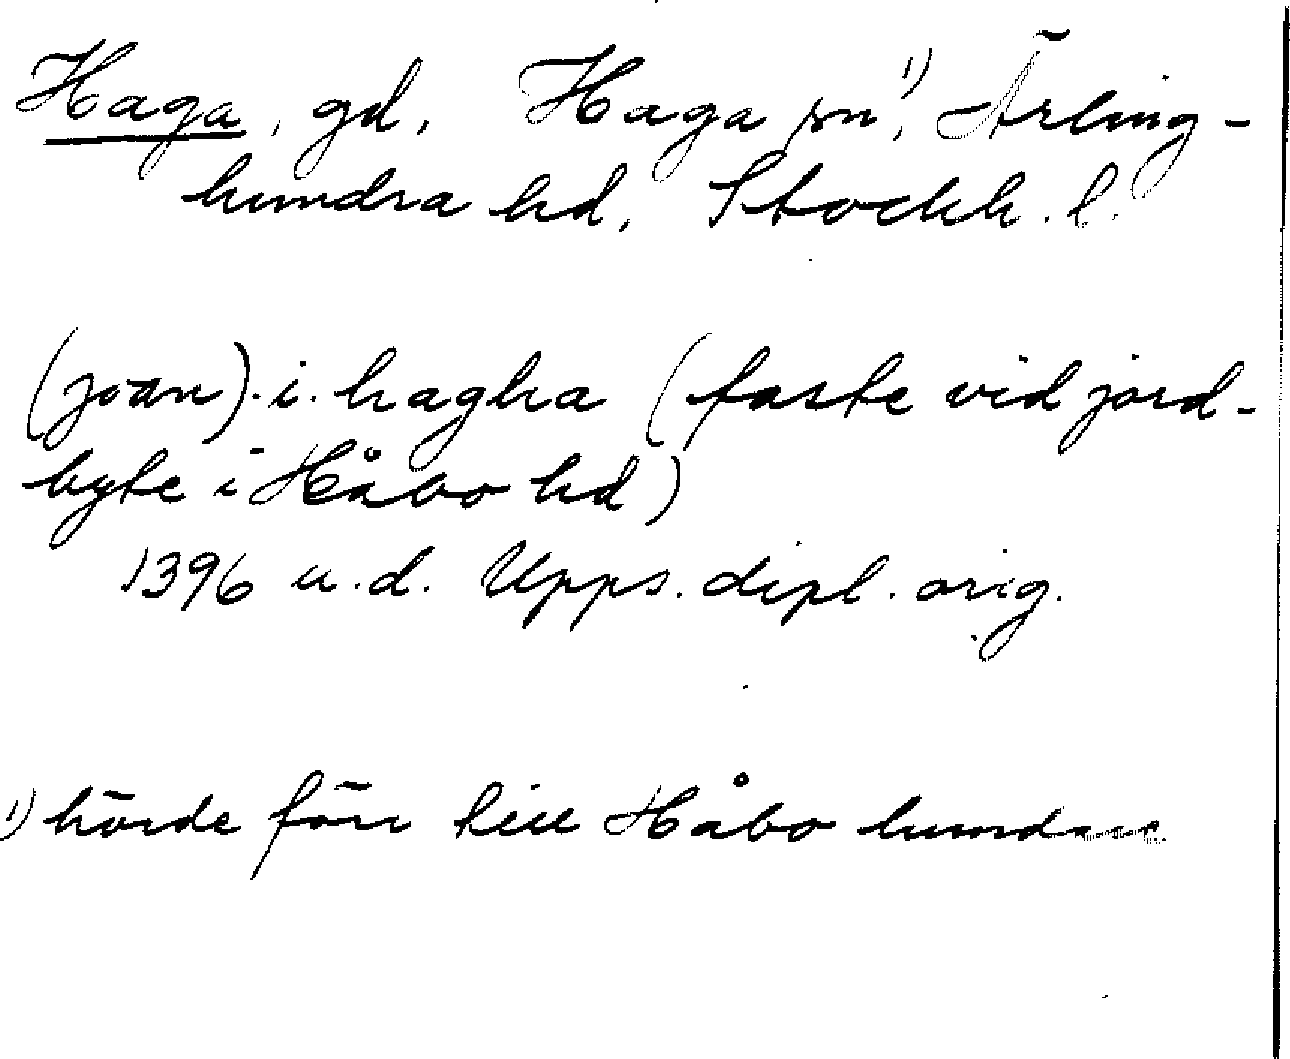 Haga, gd, Haga sn¹⁾, Ärling-
hundra hd, Stockh. l.
(joan). i. hagha (faste vid jord-
byte i Håbo hd)
1396 u.d. Upps. dipl. orig.
¹⁾ hörde förr till Håbo hundra